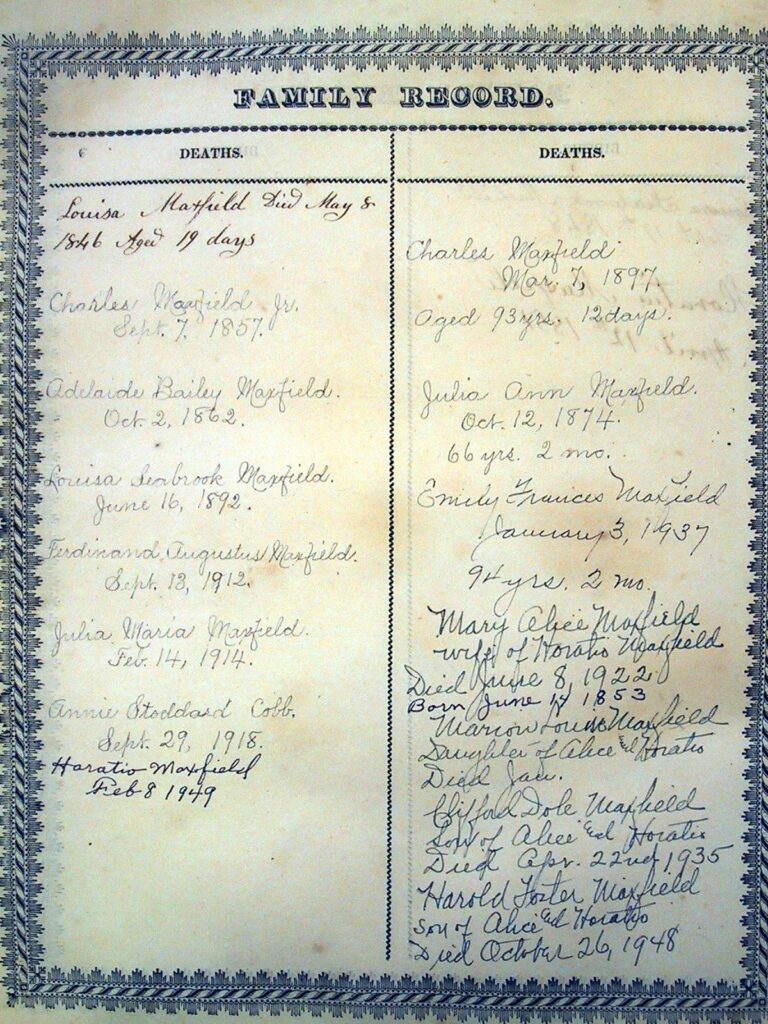 FAMILY RECORD.
DEATHS.
Louisa Maxfield Died May 8
1846 Aged 19 days
Charles Maxfield Jr.
Sept. 7, 1857.
Adelaide Bailey Maxfield.
Oct. 2, 1862.
Louisa Seabrook Maxfield.
June 16, 1892.
Ferdinand Augustus Maxfield.
Sept. 13, 1912.
Julia Maria Maxfield.
Feb. 14, 1914.
Annie Stoddard Cobb.
Sept. 29, 1918.
Horatio Maxfield
Feb 8 1949
DEATHS.
Charles Maxfield
Mar. 7, 1897.
Aged 93 yrs. 12 days.
Julia Ann Maxfield.
Oct. 12, 1874.
66 yrs. 2 mo.
Emily Frances Maxfield
January 3, 1937
94 yrs. 2 mo.
Mary Alice Maxfield
wife of Horatio Maxfield
Died June 8, 1922
Born June 1853
Marion Maxfield
Daughter of Alice and Horatio
Died Jan.
Clifford Dole Maxfield
Son of Alice and Horatio
Died Apr. 22nd 1935
Harold Foster Maxfield
son of Alice and Horatio
Died October 26, 1948